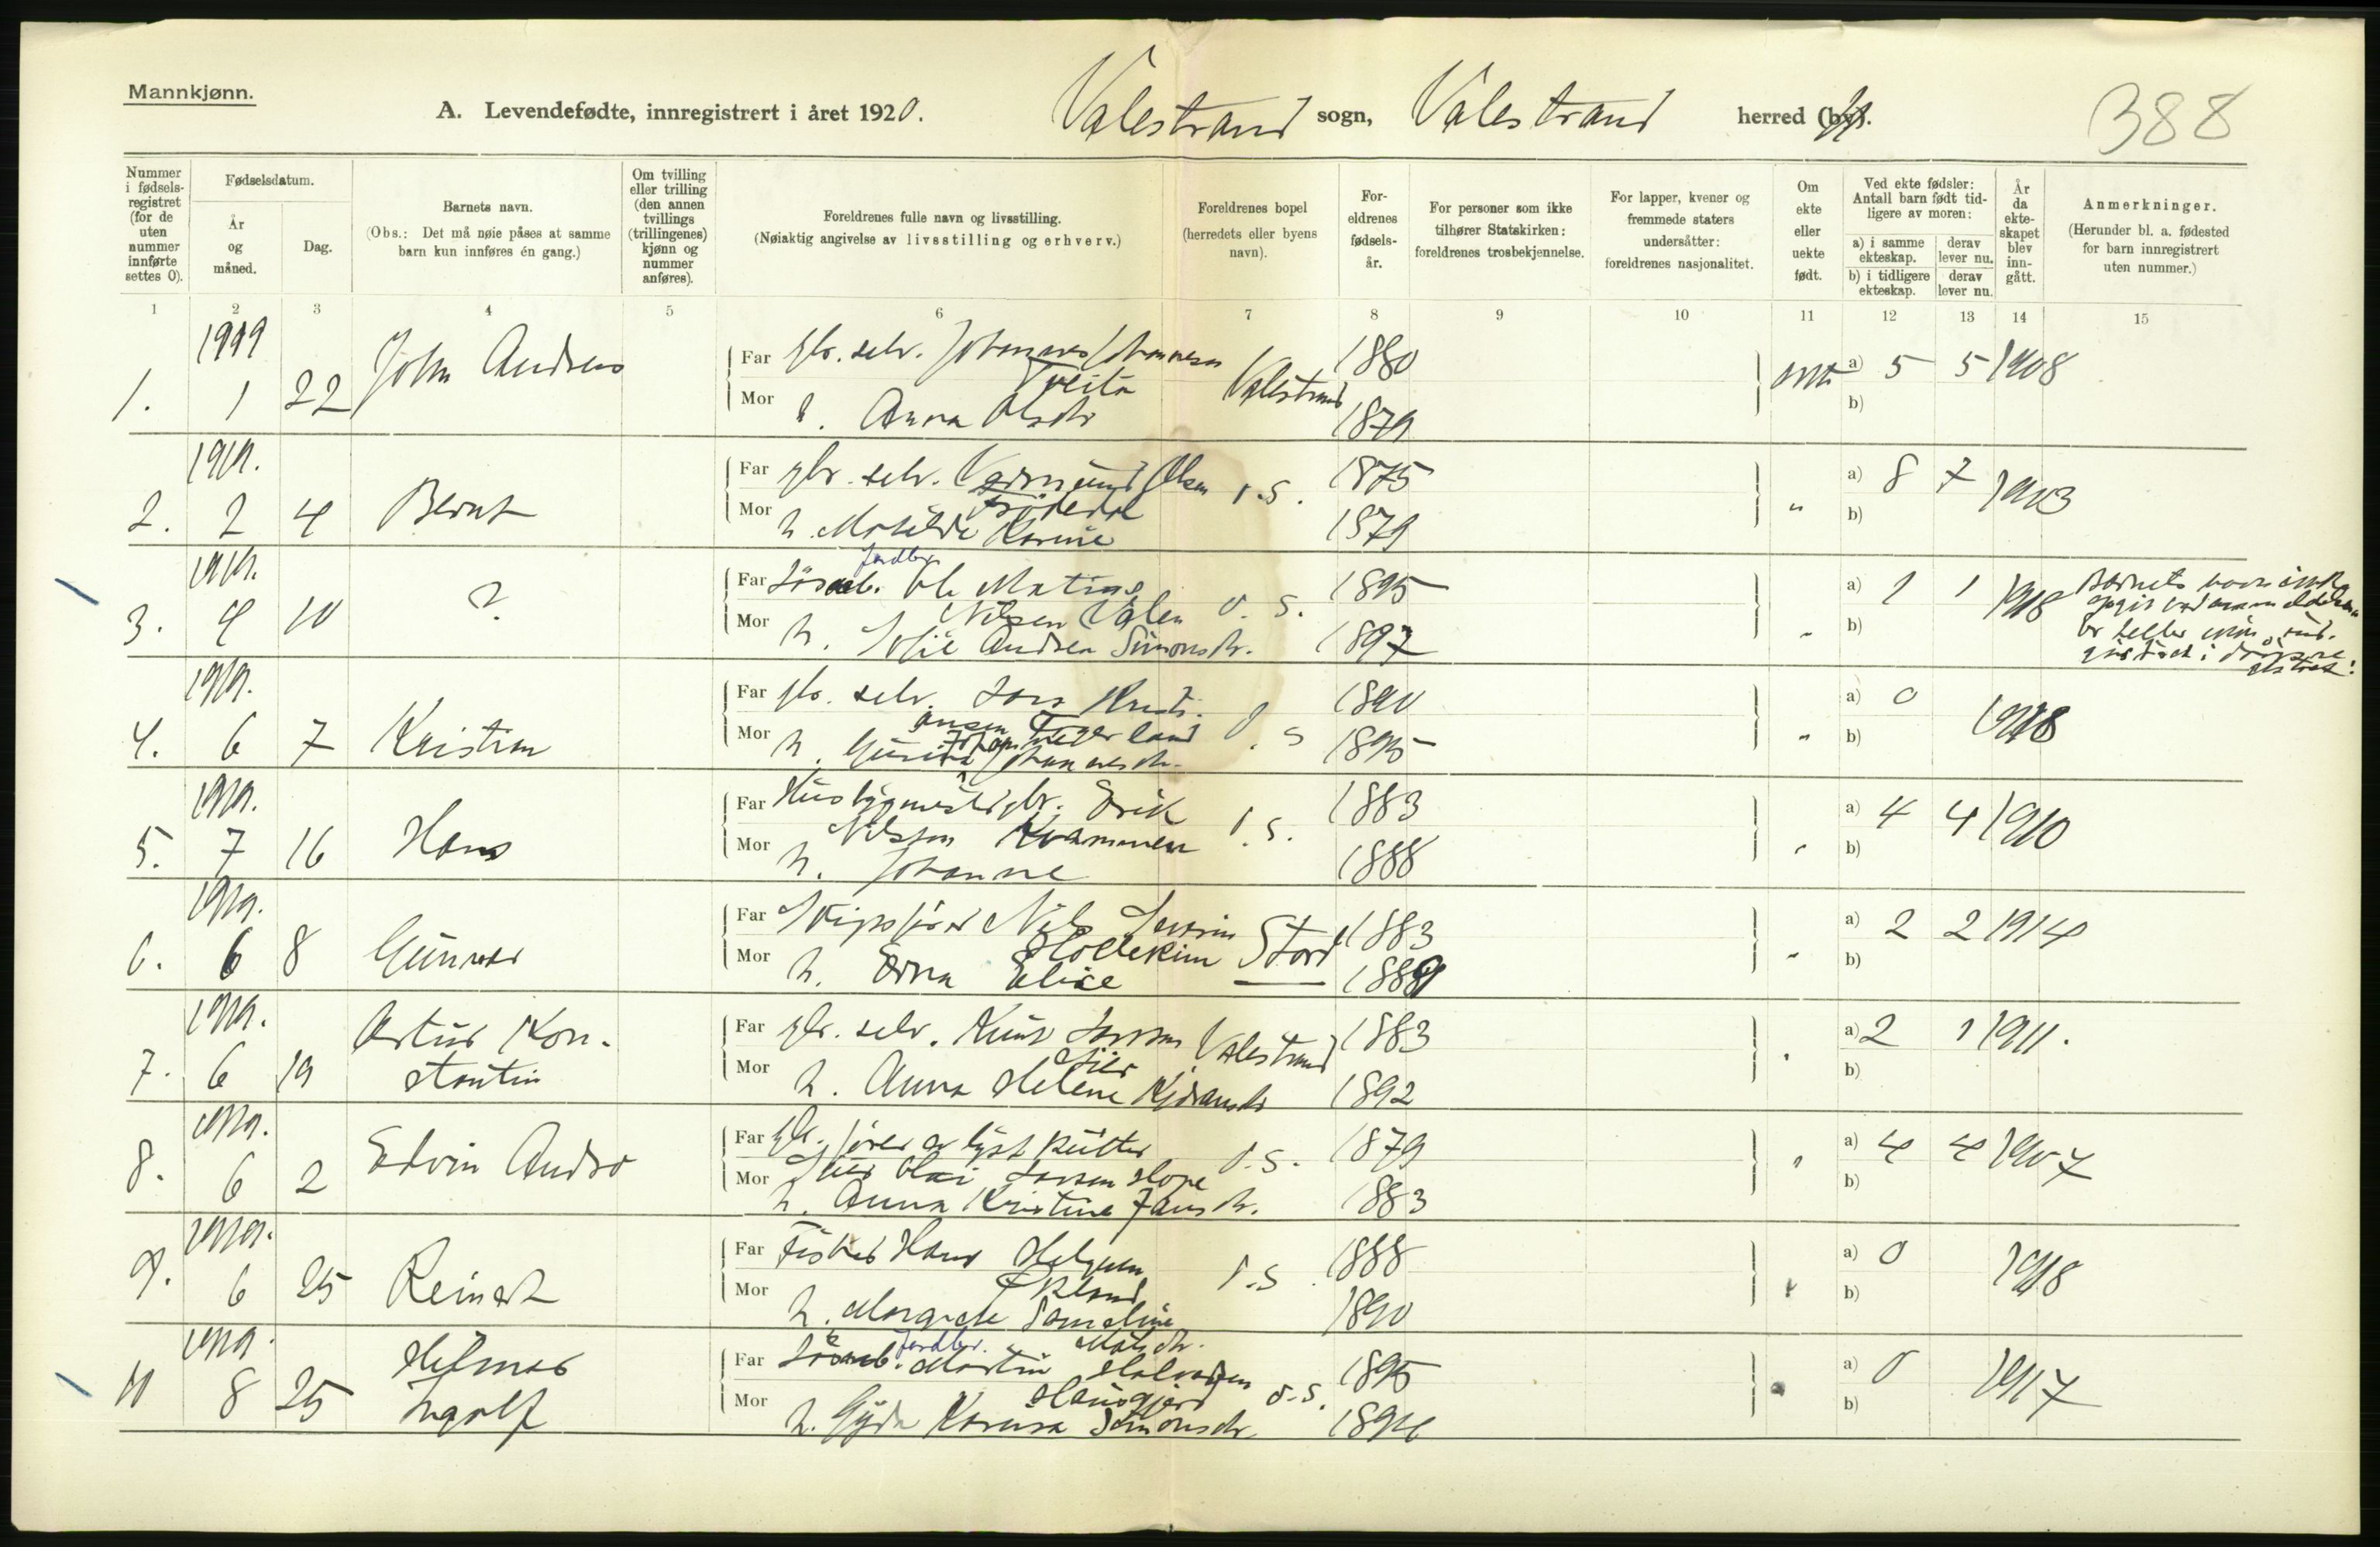 Mannkjønn.
A. Levendefødte, innregistrert i året 1920. Valestrand sogn, Valestrand herred (by).
388
Nummer i fødselsregistret (for de uten nummer innførte settes 0).
Fødselsdatum.
År og måned.
Dag.
Barnets navn.
(Obs.: Det må nøie påses at samme barn kun innføres én gang.)
Om tvilling eller trilling (den annen tvillings (trillingenes) kjønn og nummer anføres).
Foreldrenes fulle navn og livsstilling.
(Nøiaktig angivelse av livsstilling og erhverv.)
Foreldrenes bopel (herredets eller byens navn).
Foreldrenes fødselsår.
For personer som ikke tilhører Statskirken: foreldrenes trosbekjennelse.
For lapper, kvener og fremmede staters undersåtter: foreldrenes nasjonalitet.
Om ekte eller uekte født.
Ved ekte fødsler: Antall barn født tidligere av moren:
a) i samme ekteskap. derav lever nu.
b) i tidligere ekteskap. derav lever nu.
År da ekteskapet blev inngått.
Anmerkninger.
(Herunder bl. a. fødested for barn innregistrert uten nummer.)
1 2 3 4 5 6 7 8 9 10 11 12 13 14 15
1919
1. 1 22 John Andreas
Far gbr. selv. Johannes Johannesen Tveita 1880
Mor h. Anna Olsdtr Valestrand 1879
ekte a) 5 5 1908
b)
1919.
2. 2 4 Bernt
Far gbr. selv. Olsen d.s. 1875
Mor h. Matilde Karine 1879
" a) 8 7 1903
b)
1919.
3. 4 10 ?
Far jordbr. Ole Matias Nilsen Valen d.s. 1895
Mor h. Andrea Simonsdtr. 1897
" a) 1 1 1918
b)
Barnets navn
1919.
4. 6 7 Kristian
Far gbr. selv. Lars Kristiansen d.s 1890
Mor h. Johannesdtr. 1895
" a) 0 1918
b)
1919.
5. 7 16 Hans
Far Husbygmester gbr. Erik Nilssen Kvammen d.s. 1883
Mor h. Johanne 1888
" a) 4 4 1910
b)
1919.
6. 6 8 Gunnar
Far Skipsfører Nils Stord 1883
Mor h. Erna Elise — 1889
" a) 2 2 1914
b)
1919.
7. 6 19 Artur Konstantin
Far gbr. selv. Knut Larsen Valestrand 1883
Mor h. Anna Helene 1892
" a) 2 1 1911.
b)
1919.
8. 6 2 Edvin Andre
Far gbr. fører av kutter d.s. 1879
Mor h. Anna Kristine Jansdtr. 1883
" a) 4 4 1907
b)
1919.
9. 6 25 Reinert
Far Fisker Hans Helgesen Økland d.s. 1888
Mor h. Margrete 1890
" a) 0 1918
b)
1919.
10 8 25 Hilmar Ingolf
Far jordbr. Martin Halvorsen d.s. 1895
Mor h. Gyda Simonsdtr 1896
" a) 0 1917
b)